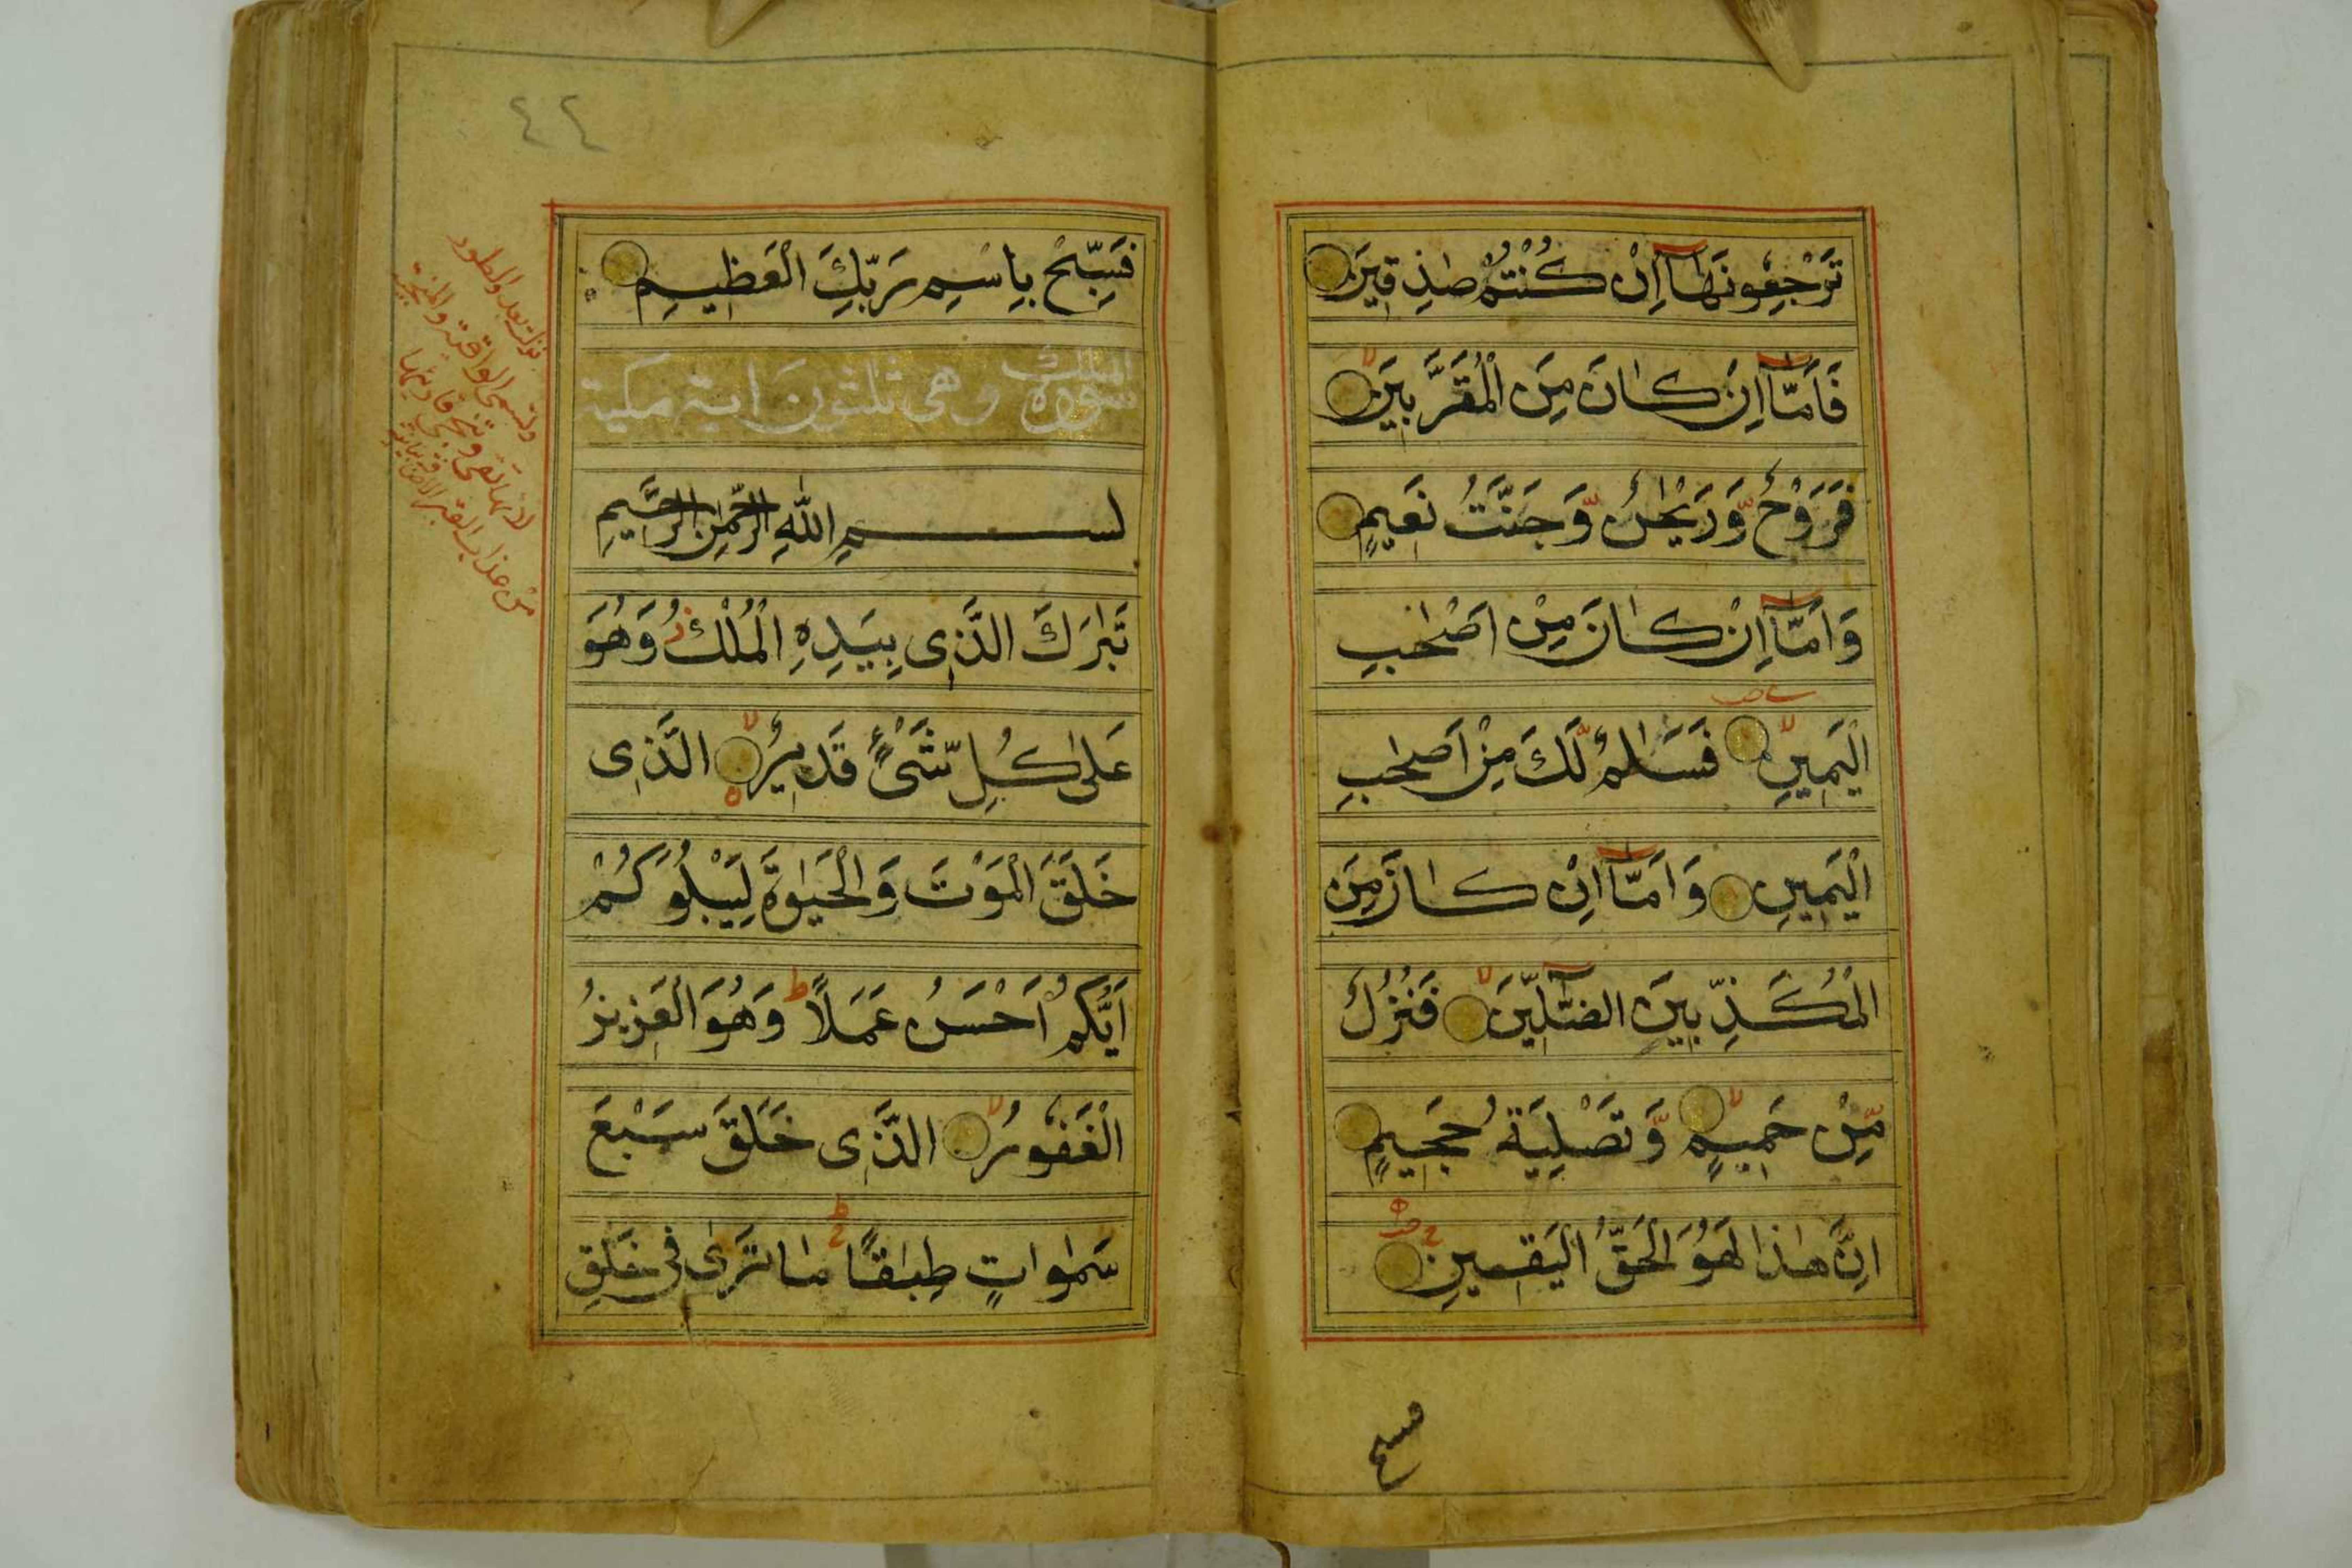 تَرْجِعُونَهَآ اِنْ كُنْتُمْ صٰدِقِيْنَ
فَاَمَّآ اِنْ كَانَ مِنَ الْمُقَرَّبِيْنَ
فَرَوْحٌ وَّرَيْحٰنٌ وَّجَنَّتُ نَعِيْمٍ
وَاَمَّآ اِنْ كَانَ مِنْ اَصْحٰبِ
الْيَمِيْنِ فَسَلٰمٌ لَّكَ مِنْ اَصْحٰبِ
الْيَمِيْنِ وَاَمَّآ اِنْ كَانَ مِنَ
الْمُكَذِّبِيْنَ الضَّآلِّيْنَ فَنُزُلٌ
مِّنْ حَمِيْمٍ وَّتَصْلِيَةُ جَحِيْمٍ
اِنَّ هٰذَا لَهُوَ الْحَقُّ الْيَقِيْنِ
فسبح
٤٤
فَسَبِّحْ بِاسْمِ رَبِّكَ الْعَظِيْمِ
سورة الملك وهى ثلثون اية مكية
بسم اللّٰهِ الرَّحْمٰنِ الرَّحِيْمِ
تَبٰرَكَ الَّذِى بِيَدِهِ الْمُلْكُ وَهُوَ
عَلٰى كُلِّ شَىْءٍ قَدِيْرٌ الَّذِى
خَلَقَ الْمَوْتَ وَالْحَيٰوةَ لِيَبْلُوَكُمْ
اَيُّكُمْ اَحْسَنُ عَمَلًا وَهُوَ الْعَزِيْزُ
الْغَفُوْرُ الَّذِى خَلَقَ سَبْعَ
سَمٰوَاتٍ طِبَاقًا مَا تَرٰى فِى خَلْقِ
من عذاب القبر